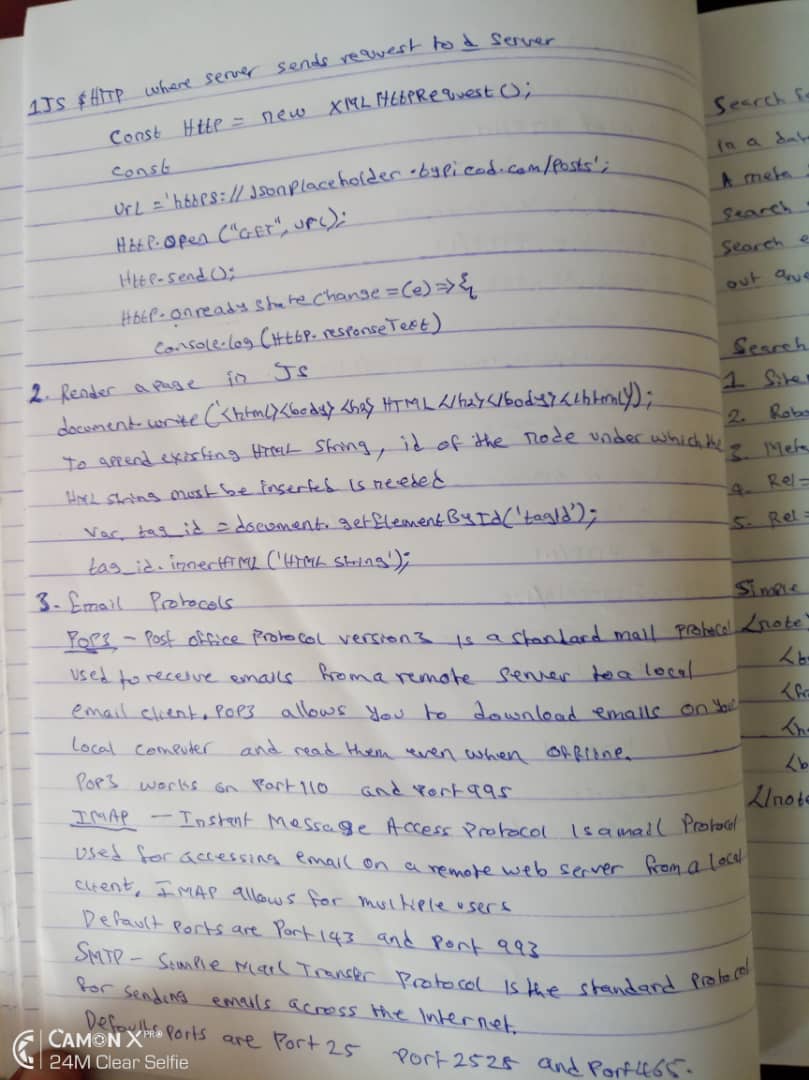 1JS & HTTP where server sends request to a Server
Const Http = new XMLHttpRequest();
const
Url = 'https://Jsonplaceholder.typicod.com/Posts';
Http.open ("GET", url);
Http.send();
Http.onready state change = (e) => {
Console.log (Http.responseText)
2. Render a page in JS
document.write ('<html><body><h2> HTML </h2></body></html>');
To append existing HTML string, id of the node under which the
HTML string must be inserted is needed
Var tag_id = document.getElementById('tagId');
tag_id.innerHTML ('HTML string');
3- Email Protocols
POP3 - Post office Protocol version 3 is a standard mail protocol
used to receive emails from a remote server to a local
email client. POP3 allows you to download emails on your
local computer and read them even when offline.
POP3 works on Port 110 and port 995
IMAP - Instant Message Access Protocol is a mail Protocol
used for accessing email on a remote web server from a local
client, IMAP allows for multiple users
Default Ports are Port 143 and Port 993
SMTP - Simple Mail Transfer Protocol is the standard Protocol
for sending emails across the Internet.
Defaults Ports are Port 25 Port 2525 and Port 465.
Search
in a
A meta
Search
Search
out
Search
1
2.
3. Meta
4. Rel =
5. Rel =
Simple
<note>
</note
CAMON X PRO
24M Clear Selfie